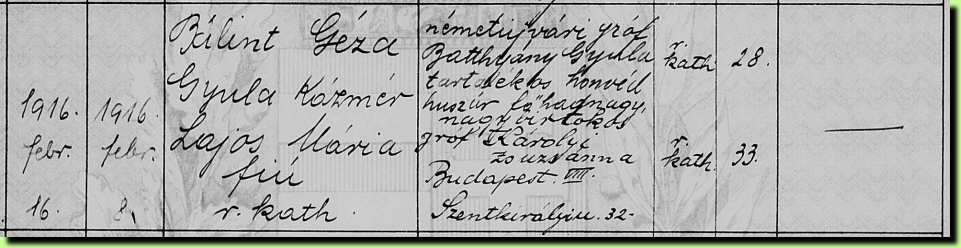 1916. febr. 16.
1916. febr. 8.
Bálint Géza
Gyula Kázmér
Lajos Mária
fiú
r. kath.
németujvári gróf
Batthyány Gyula
tartalékos honvéd
huszár főhadnagy,
nagybirtokos
gróf Károlyi
Zsuzsánna
Budapest. VIII.
Szentkirályiu. 32.
r. kath.
r. kath.
28.
33.